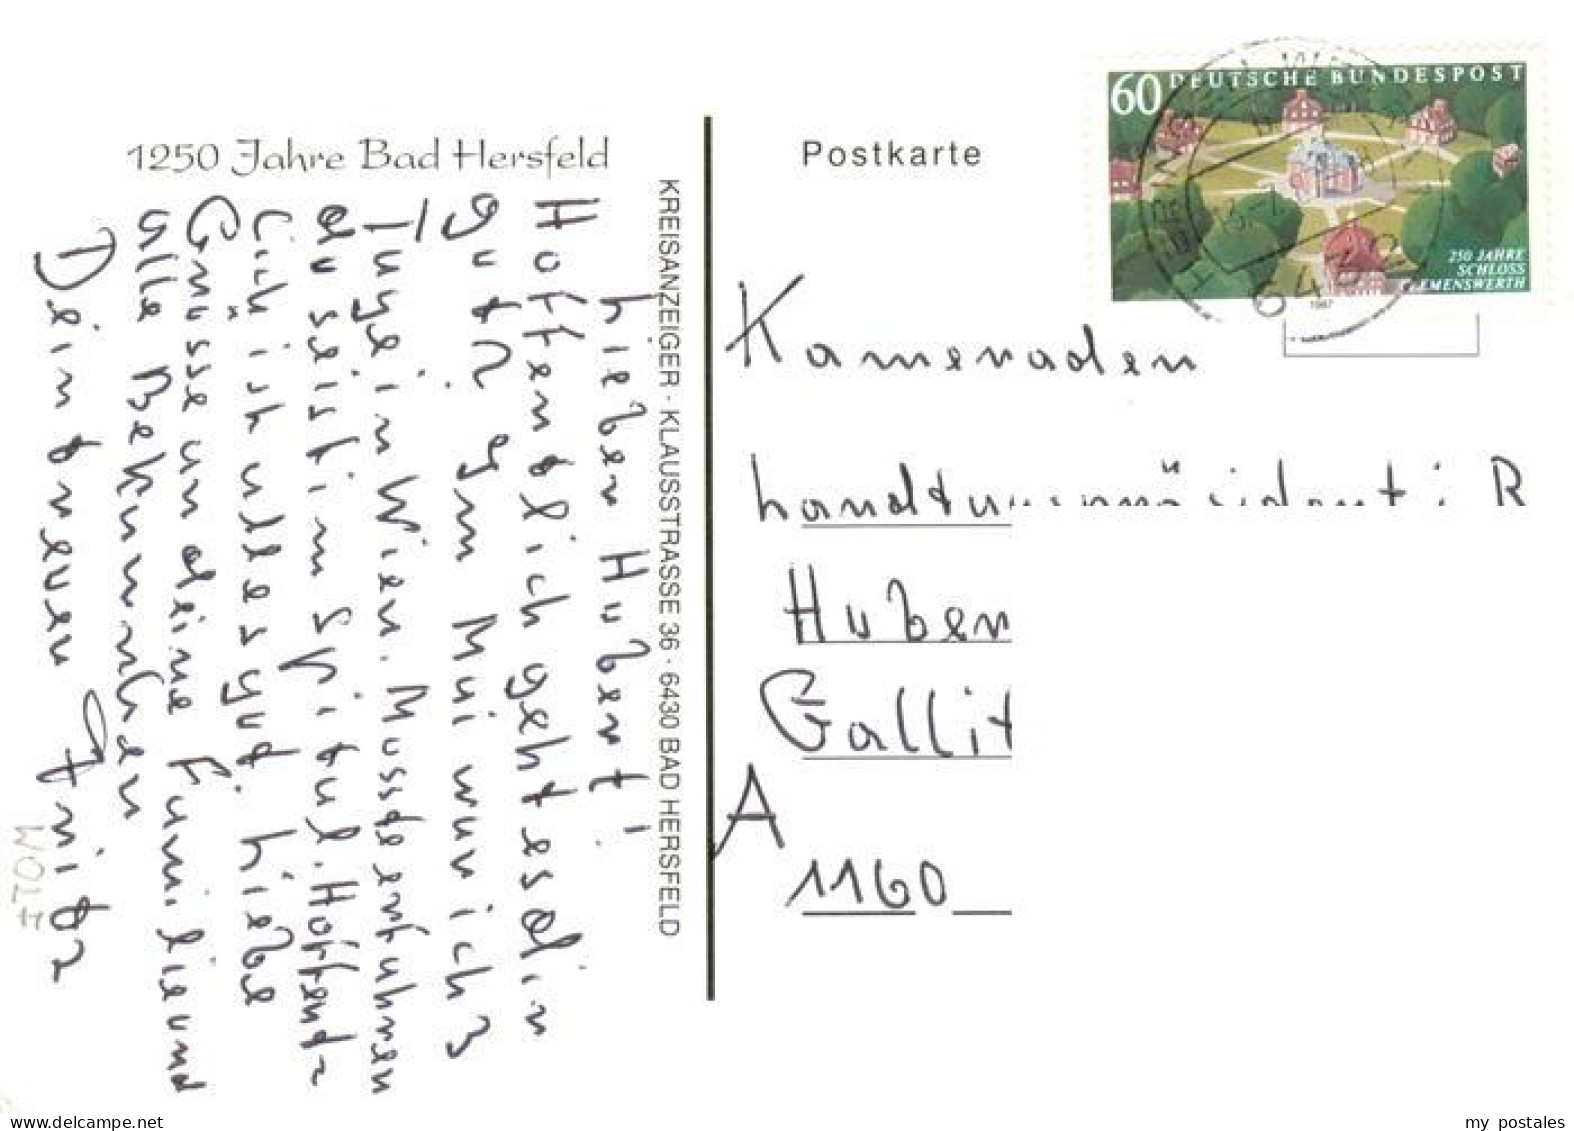 1250 Jahre Bad Hersfeld
KREISANZEIGER · KLAUSSTRASSE 36 · 6430 BAD HERSFELD
Lieber Hubert!
Hoffendlich geht es dir
gut? Im Mai war ich 3
Tage in Wien. Musste erfahren
du seist im Spital. Hoffend=
Lich ist alles gut. Liebe
Grüsse an deine Familie und
alle Bekannten
Dein treuer Fritz
Postkarte
60 DEUTSCHE BUNDESPOST
250 JAHRE
SCHLOSS
CLEMENSWERTH
1987
Kameraden
Huber
Gallit
A
1160
my-postales.delcampe.net
my postales